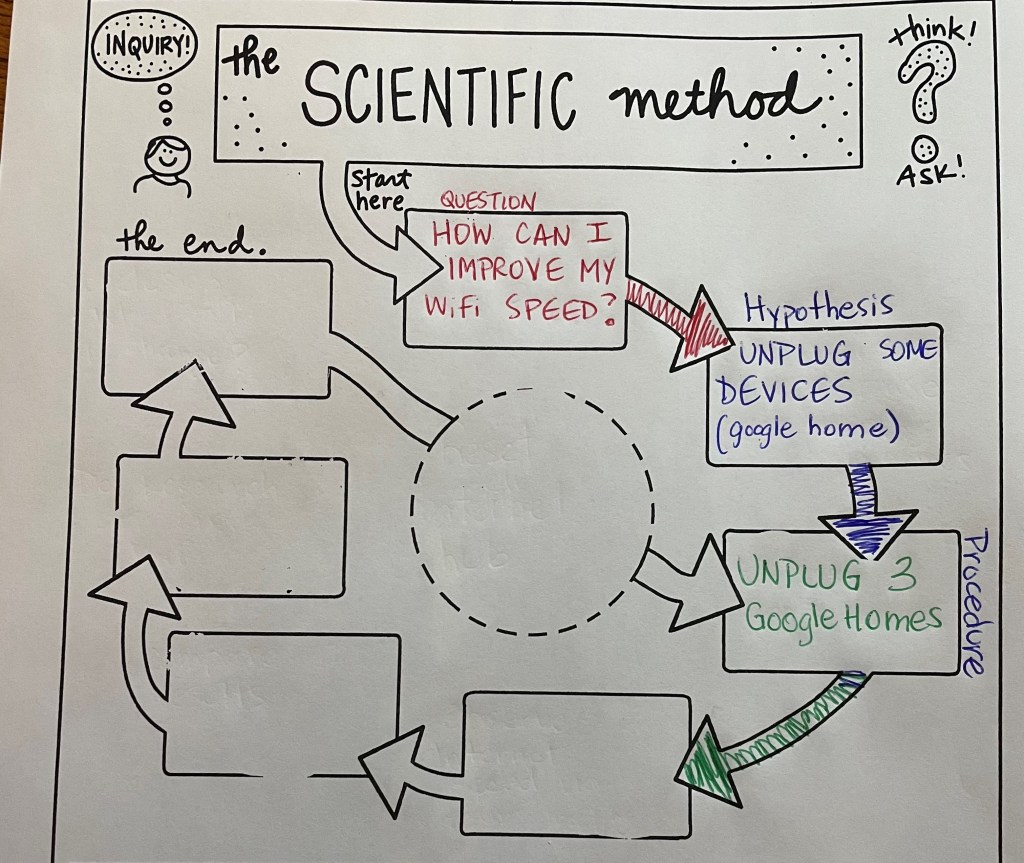 INQUIRY!
the SCIENTIFIC method
think!
ASK!
Start
here
QUESTION
HOW CAN I
IMPROVE MY
WiFi SPEED?
the end.
Hypothesis
UNPLUG SOME
DEVICES
(google home)
Procedure
UNPLUG 3
Google Homes